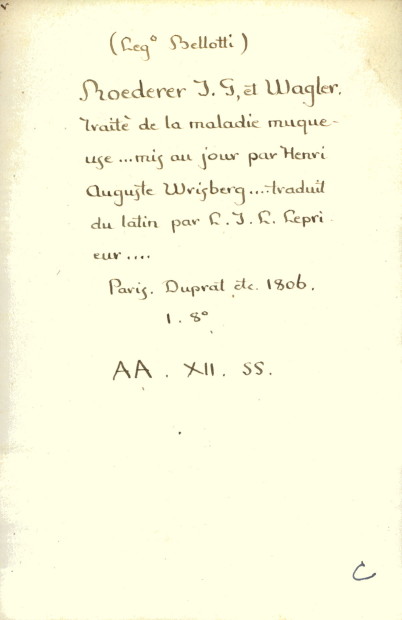 (Leg° Bellotti)
Roederer J. G, et Wagler.
Traité de la maladie muque-
use ... mis au jour par Henri
Auguste Wrisberg .... traduit
du latin par L. J. L. Lepri
eur ....
Paris. Duprat etc. 1806.
1. 8°
AA. XII. SS.
C